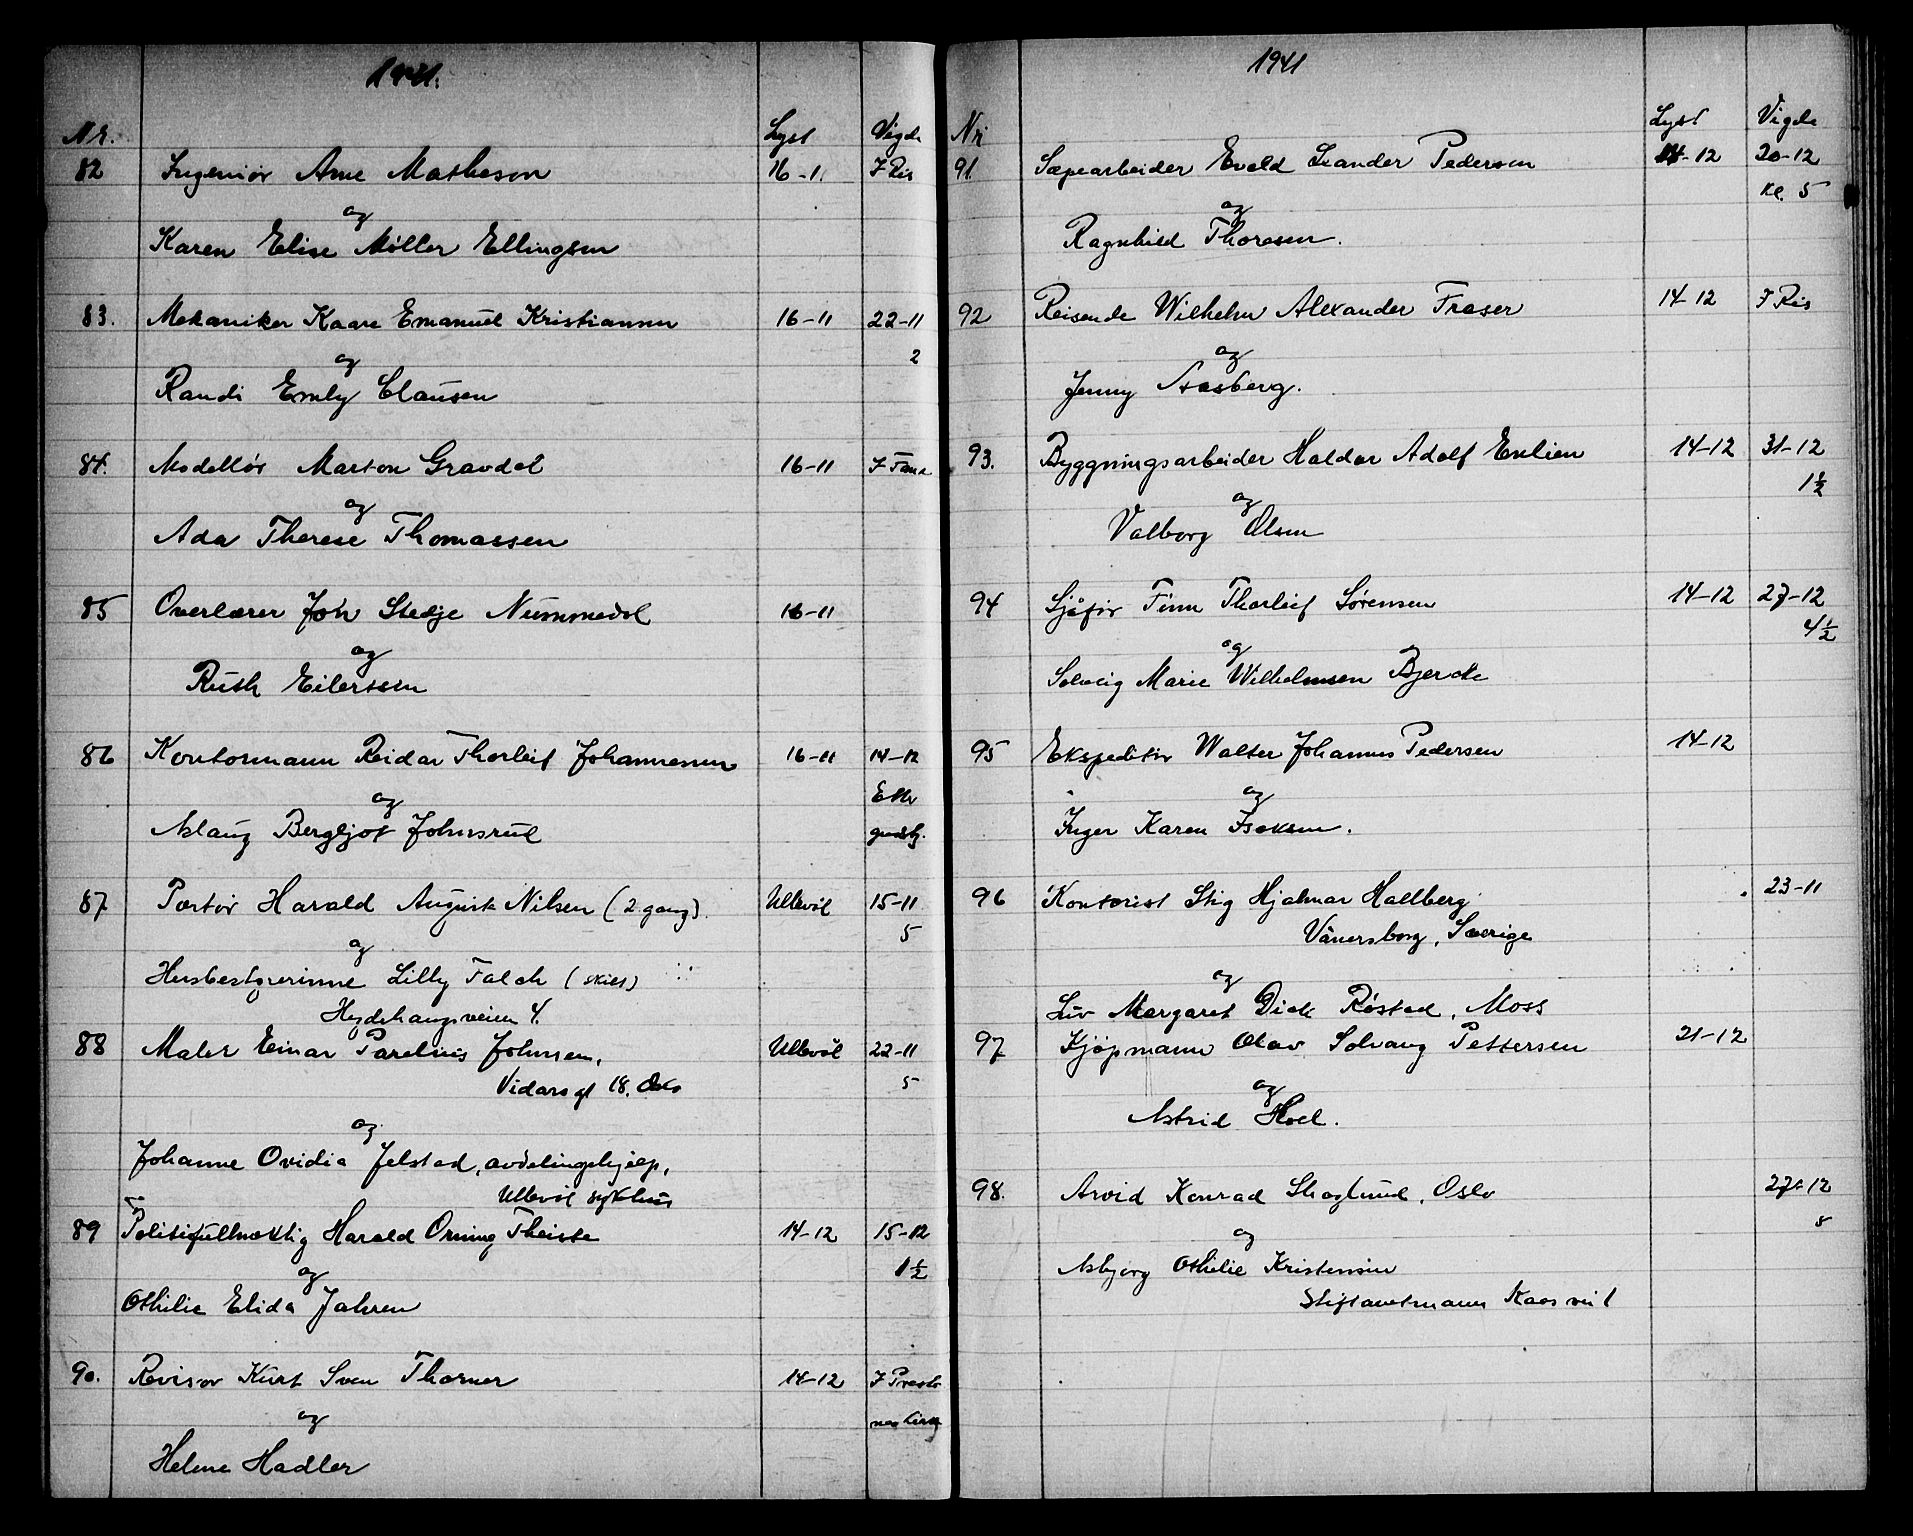 1941.
Nr. Lyst Vigde
82 Ingeniør Arne Matheson 16-11 I Ris
og
Karen Elise Møller Ellingsen
83. Mekaniker Kaare Emanuel Kristiansen 16-11 22-11
og 2
Randi Emly Clausen
84. Modellør Marton Gravdal 16-11 I Fana
og
Ada Therese Thomassen
85 Overlærer Joh Stedje Nummedal 16-11
og
Ruth Eilertsen
86 Kontormann Reidar Thorleif Johannessen 16-11 14-12
og Etter
Aslaug Bergljot Johnsrud gudstj.
87 Portør Harald August Nilsen (2. gang). Ullevål 15-11
og 5
Husbestyrerinne Lilly Falch (skilt)
Heydehaugsveien 4.
88 Maler Einar Parelius Johnsen, Ullevål 22-11
Vidars gt 18. Oslo 5
og
Johanne Ovidia Jelstad, avdelingshjelp,
Ullevål sykehus
89 Politifullmektig Harald Orning Theiste 14-12 15-12
og 1½
Othilie Elida Jahren
90. Revisor Kurt Sven Thorner 14-12 I Prest-
og
Helene Hadler
1941
Nr Lyst Vigde
91. Sæpearbeider Evald Leander Pedersen 14-12 20-12
kl. 5
og
Ragnhild Thoresen.
92 Reisende Wilhelm Alexander Fraser 14-12 I Ris
og
Jenny Aasberg.
93. Byggningsarbeider Haldor Adolf Enlien 14-12 31-12
og 1½
Valborg Olsen
94 Sjåfør Finn Thorleif Sørensen 14-12 27-12
4½
og
Solveig Marie Wilhelmsen Bjercke
95 Ekspeditør Walter Johannes Pedersen 14-12
og
Inger Karen Isaksen.
96 Kontorist Stig Hjalmar Hallberg 23-11
Vänersborg, Sverige
og
Liv Margaret Dick Røstad, Moss
97 Kjøpmann Olav Solvang Pettersen 21-12
og
Astrid Hoel.
98. Arvid Konrad Skoglund, Oslo 27-12
5
og
Asbjørg Othilie Kristensen
Stiftamtmann Kaas vei 1